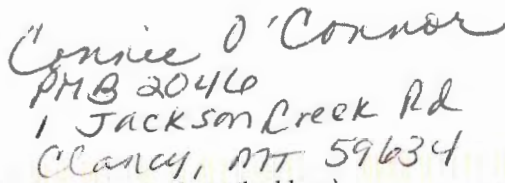 Connie O'Connor
PMB 2046
1 Jackson Creek Rd
Clancy, MT 59634